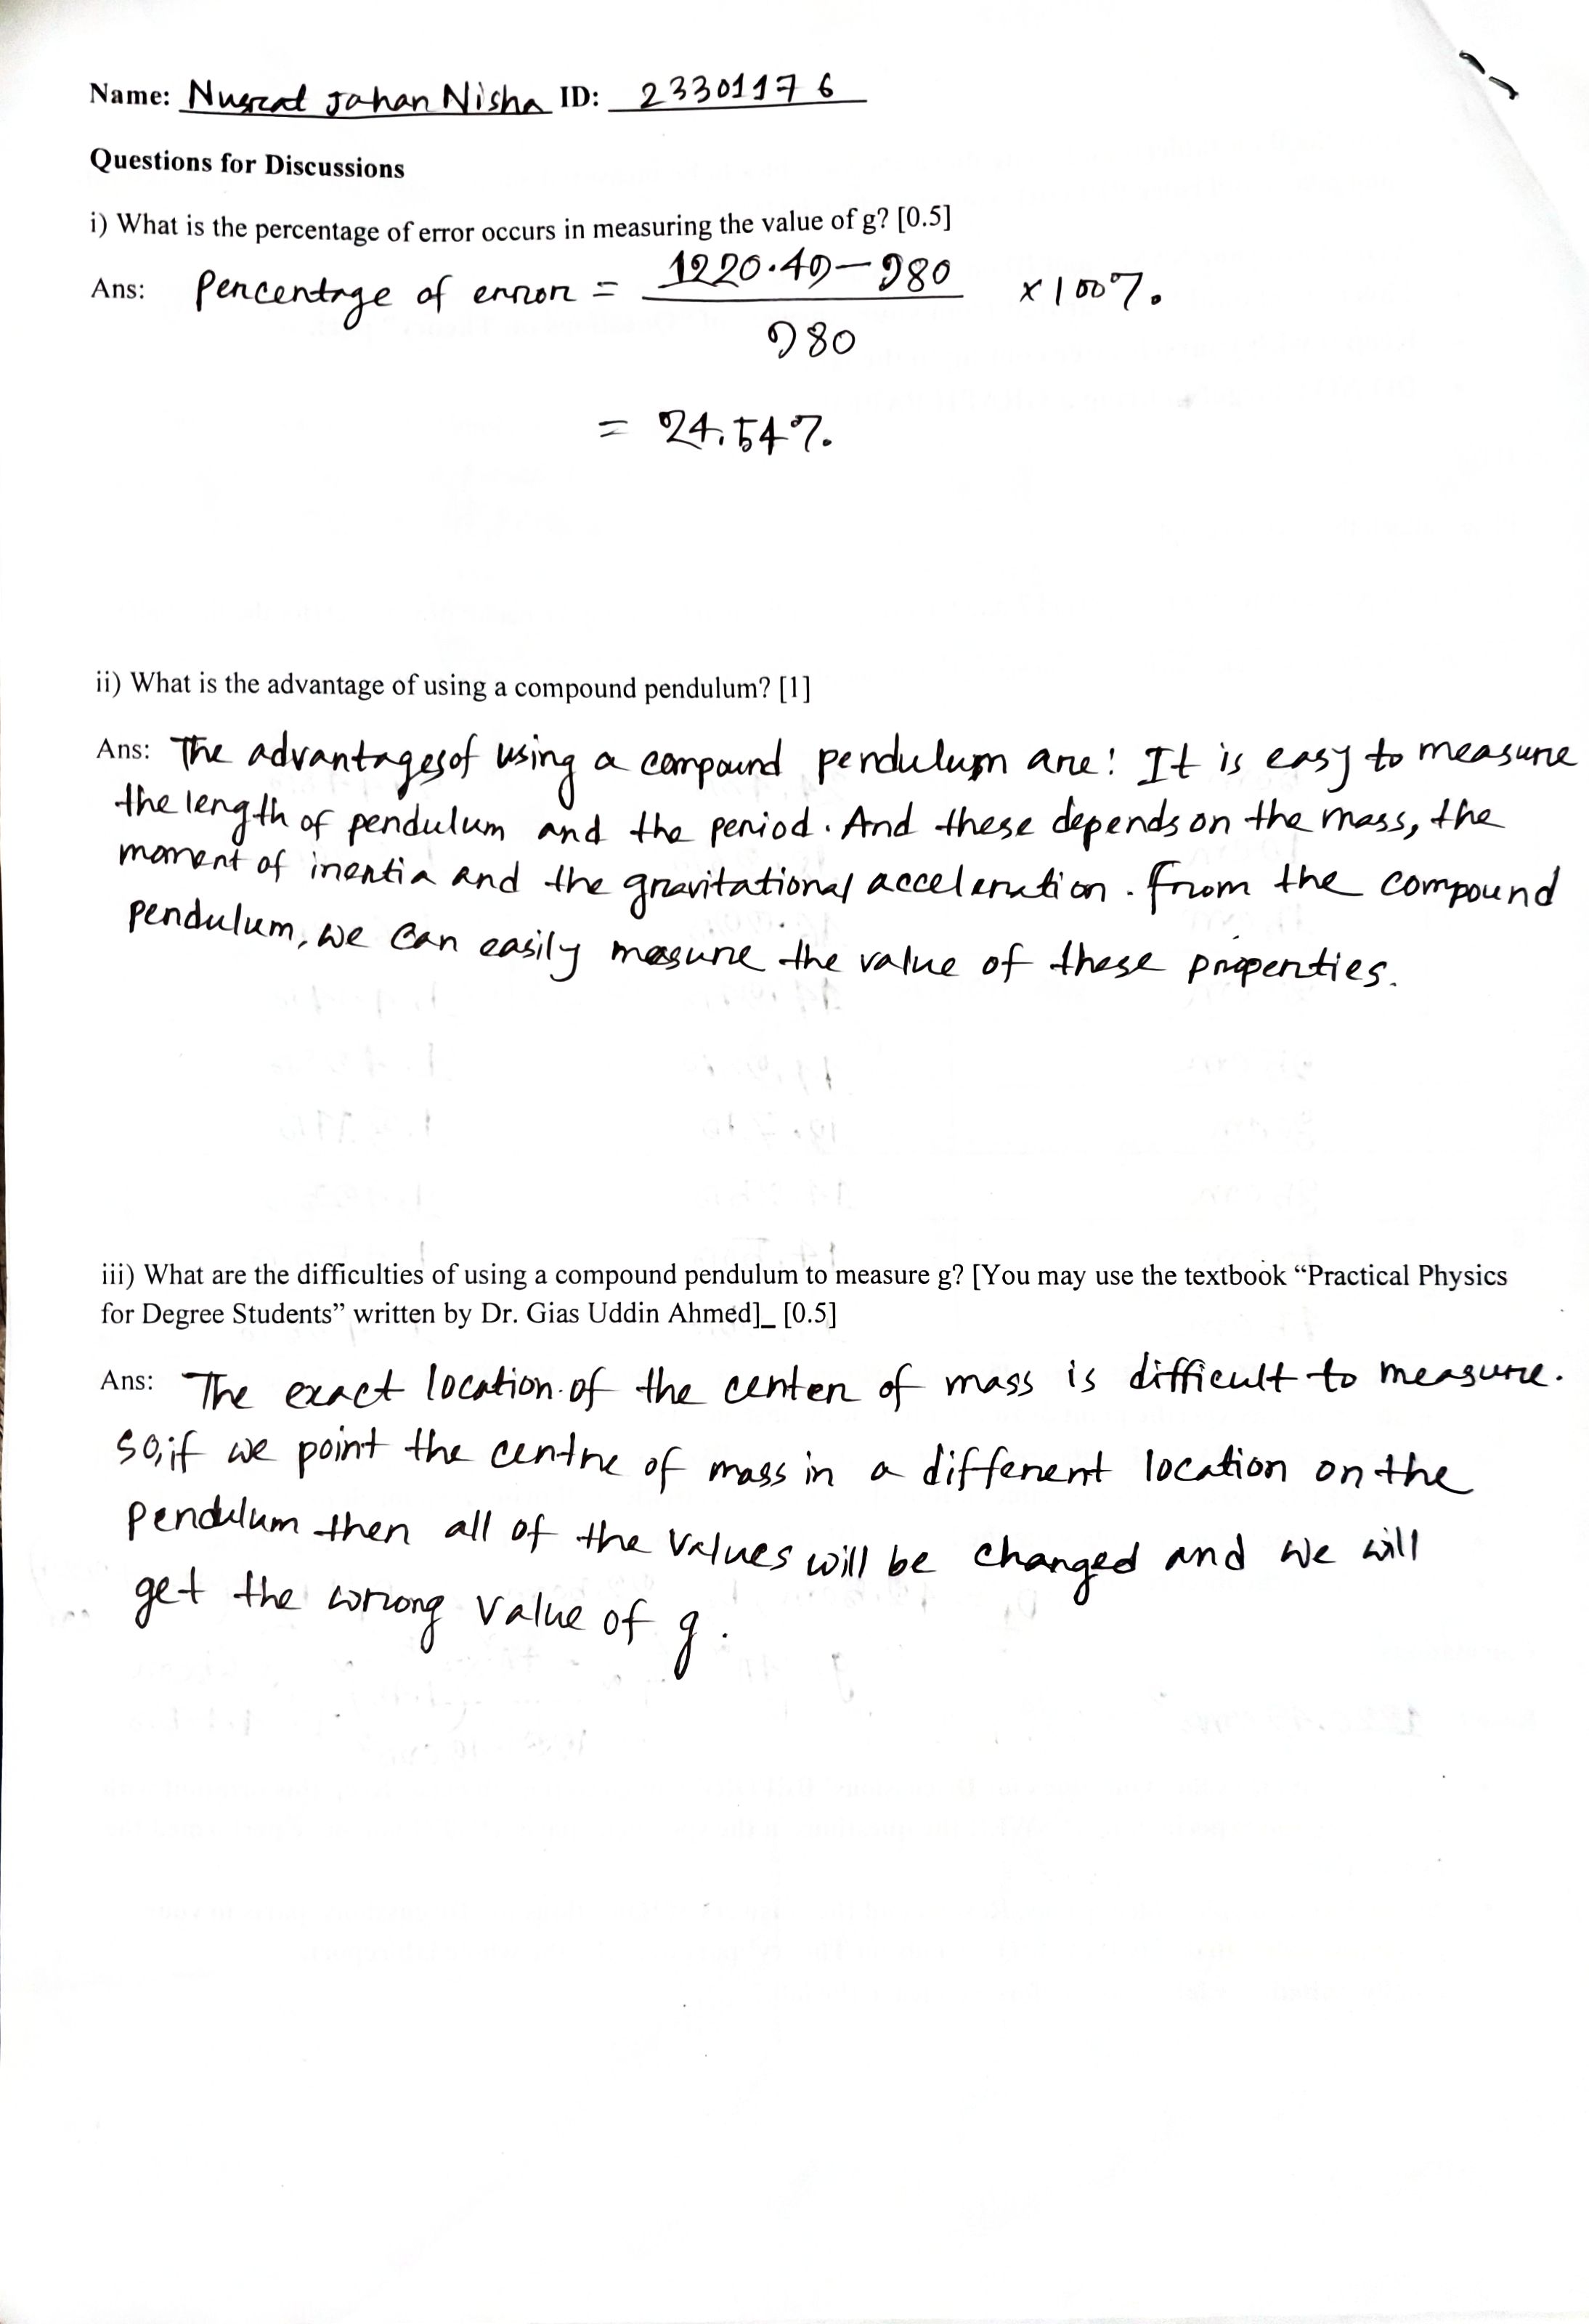 Name: Nusrat Jahan Nisha ID: 23301176
Questions for Discussions
i) What is the percentage of error occurs in measuring the value of g? [0.5]
Ans: Percentage of error = 1220.49-980 / 980 ×100%
= 24.54%
ii) What is the advantage of using a compound pendulum? [1]
Ans: The advantages of using a compound pendulum are: It is easy to measure
the length of pendulum and the period. And these depends on the mass, the
moment of inertia and the gravitational acceleration. From the compound
pendulum, we can easily measure the value of these properties.
iii) What are the difficulties of using a compound pendulum to measure g? [You may use the textbook “Practical Physics
for Degree Students” written by Dr. Gias Uddin Ahmed]_ [0.5]
Ans: The exact location of the center of mass is difficult to measure.
So, if we point the centre of mass in a different location on the
pendulum then all of the values will be changed and we will
get the wrong value of g.